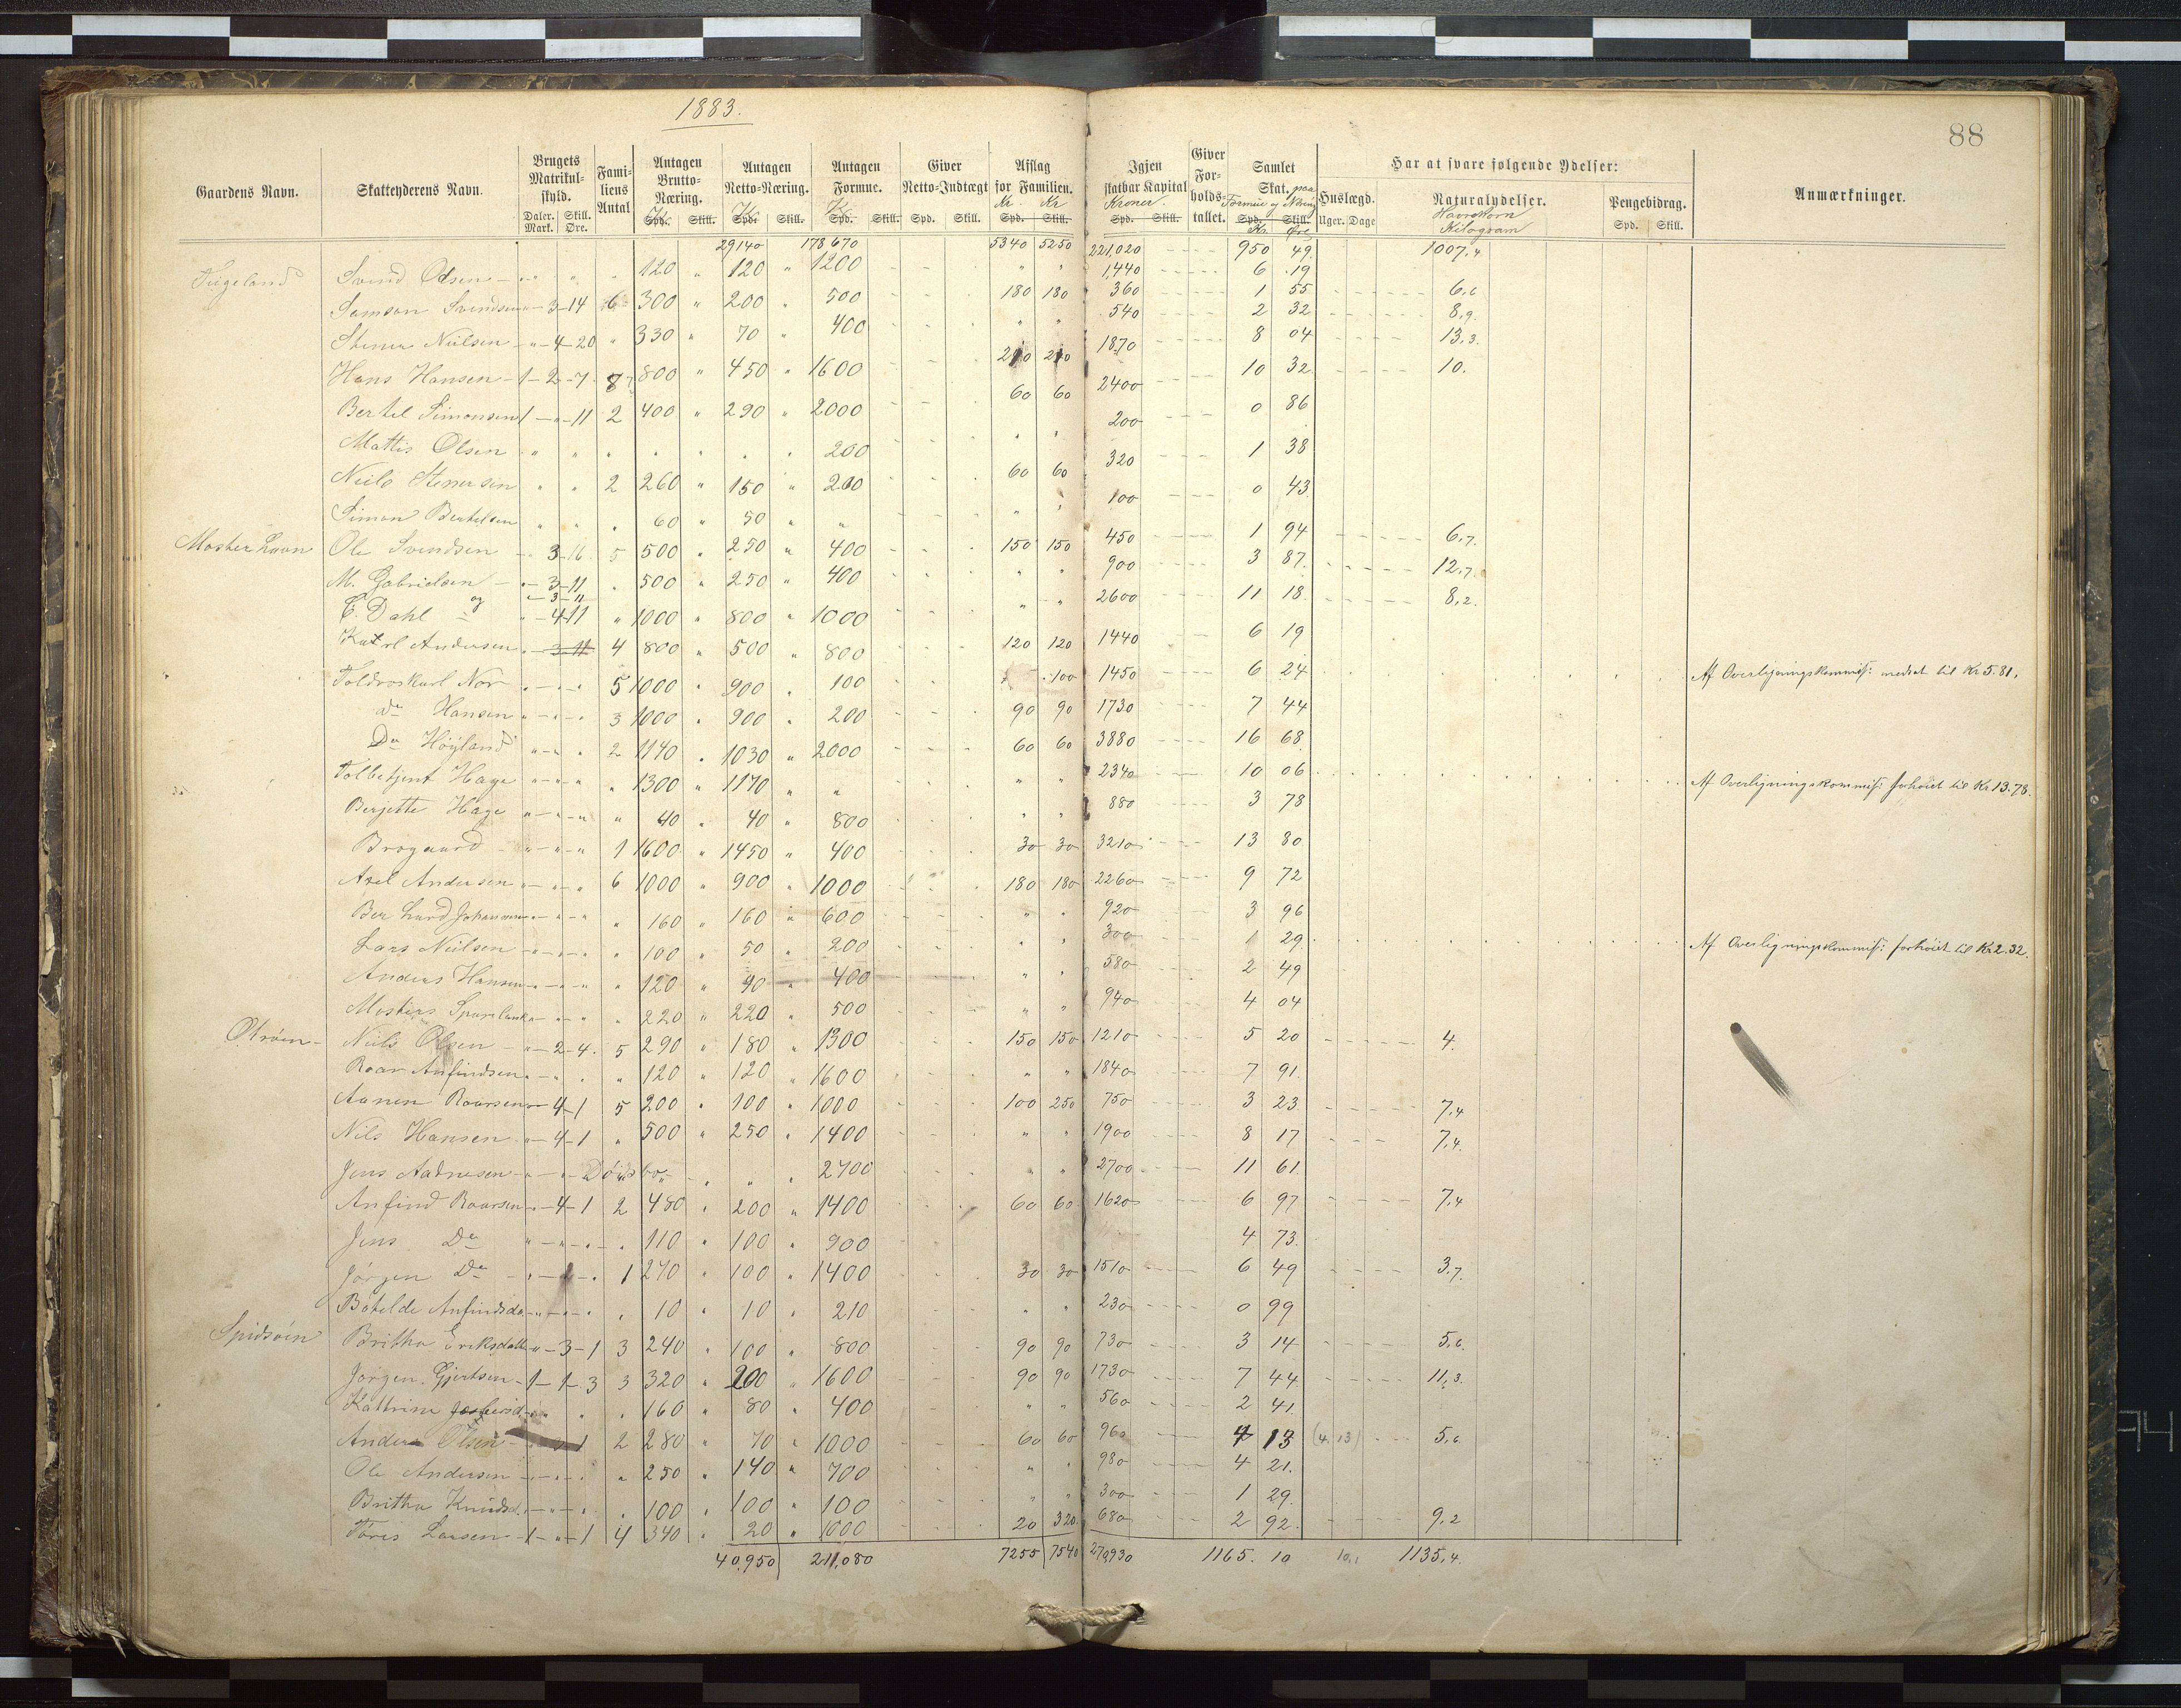 1883.
88
Gaardens Navn. Skatteyderens Navn. Brugets Matrikul-skyld. Fami-liens Antal Antagen Brutto-Næring. Antagen Netto-Næring. Antagen Formue. Giver Netto-Indtægt Afslag for Familien. Igjen skatbar Kapital Giver For-holds-tallet. Samlet Skat. paa Formue og Næring Har at svare følgende Ydelser: Anmærkninger.
Daler. Mark. Skill. Øre. Kr Spd. Skill. Kr Spd. Skill. Kr Spd. Skill. Spd. Skill. Kr. Spd. Kr Skill. Kroner. Spd. Skill. Spd. Kr. Skill. Øre Huslægd. Uger. Dage Naturalydelser. Havrekorn Kilogram Pengebidrag. Spd. Skill.
29140 178670 5340 5250 221,020 950 49. 1007,4
Svend Olsen - " " " 120 " 120 " 1200 " " 1,440 6 19
Samson Svendsen " - 3-14 6 300 " 200 " 500 180 180 360 1 55 6,6
Nielsen - " - 4-20 " 330 " 70 " 400 " " 540 2 32 8,9.
Hans Hansen - 1-2-7. 8 800 " 450 " 1600 210 210 1870 8 04 13,3.
Bertel Simonsen 1-"-11 2 400 " 290 " 2000 60 60 2400 10 32 10.
Mattis Olsen " " " " " " " 200 " " 200 0 86
Niels Stenersen " " 2 260 " 150 " 200 60 60 320 1 38
Simon Bertelsen " " " 60 " 50 " " " " 100 0 43
Mosterhavn Ole Svendsen - 3-16. 5 500 " 250 " 400 150 150 450 1 94 6,7.
M. Gabrielsen - " - 3-11 " 500 " 250 " 400 " " 900 3 87. 12,7.
og " - 3-11
E. Dahl " - 4-11 " 1000 " 800 " 1000 " " 2600 11 18 8,2.
Karl Andersen " - 3-11 4 800 " 500 " 800 120 120 1440 6 19
Toldroskarl Nor " - " - " 5 1000 " 900 " 100 100 1450 6 24 Af Overligningskommis: nedsat til Kr 5.81.
Do Hansen " - " - " 3 1000 " 900 " 200 90 90 1730 7 44
Do Høyland " - " " 2 1140 " 1030 " 2000 60 60 3880 16 68
Tolbetjent Hage " - " - " " 1300 " 1170 " " " " 2340 10 06 Af Overligningskommis: forhøiet til Kr. 13.78.
Berjette Hage " - " - " " 40 " 40 " 800 " " 880 3 78
Brogaard - " - " - " 1 1600 " 1450 " 400 30 30 3210 13 80
Axel Andersen " - " - " 6 1000 " 900 " 1000 180 180 2260 9 72
Johannesen " - " - " " 160 " 160 " 600 " " 920 3 96
Lars Nielsen - " - " - " " 100 " 50 " 200 " " 300 1 29 Af Overligningskommis: forhøiet til Kr 2.32.
Anders Hansen " - " - " " 120 " 90 " 400 " " 580 2 49
Mosters Sparebank " - " - " " 220 " 220 " 500 " " 940 4 04
Niels Olsen - " - 2-4. 5 290 " 180 " 1300 150 150 1210 5 20 4.
Roar Anfindsen " - " " " 120 " 120 " 1600 " " 1840 7 91.
Roarsen " - 4-1 5 200 " 100 " 1000 100 250 750 3 23 7,4
Nils Hansen " - 4-1 " 500 " 250 " 1400 " " 1900 8 17 7,4.
Jens - " - " - Dødsbo " " " 2700 " " 2700 11 61.
Anfind Roarsen " - 4-1 2 480 " 200 " 1400 60 60 1620 6 97 7,4
Jens Do " - " - " - " 110 " 100 " 900 4 73.
Jørgen Do " - " " 1 270 " 100 " 1400 30 30 1510 6 49 3,7.
Botelde Anfindsda " - " - " " 10 " 10 " 210 " " 230 0 99
Spidsøen Britha Eriksdatt " - 3-1 3 240 " 100 " 800 90 90 730 3 14 5,6.
Jørgen Gjertsen - 1-1-3 3 320 " 200 " 1600 90 90 1730 7 44 11,3.
Kattrine " " " 160 " 80 " 400 " " 560 2 41.
Anders Olsen 1 2 280 " 70 " 1000 60 60 960 4 13 (4 13) 5,6
Ole Andersen - " - " - " " 250 " 140 " 700 " " 980 4 21.
Britha Knudsd. " - " - " " 100 " 100 " 100 " " 300 1 29.
Larsen - 1-"-1 4 340 " 20 " 1000 20 320 680 2 92. 9,2
40,950 211,080 7255 7540 270930 1165. 10 10,1 1135,4.
94